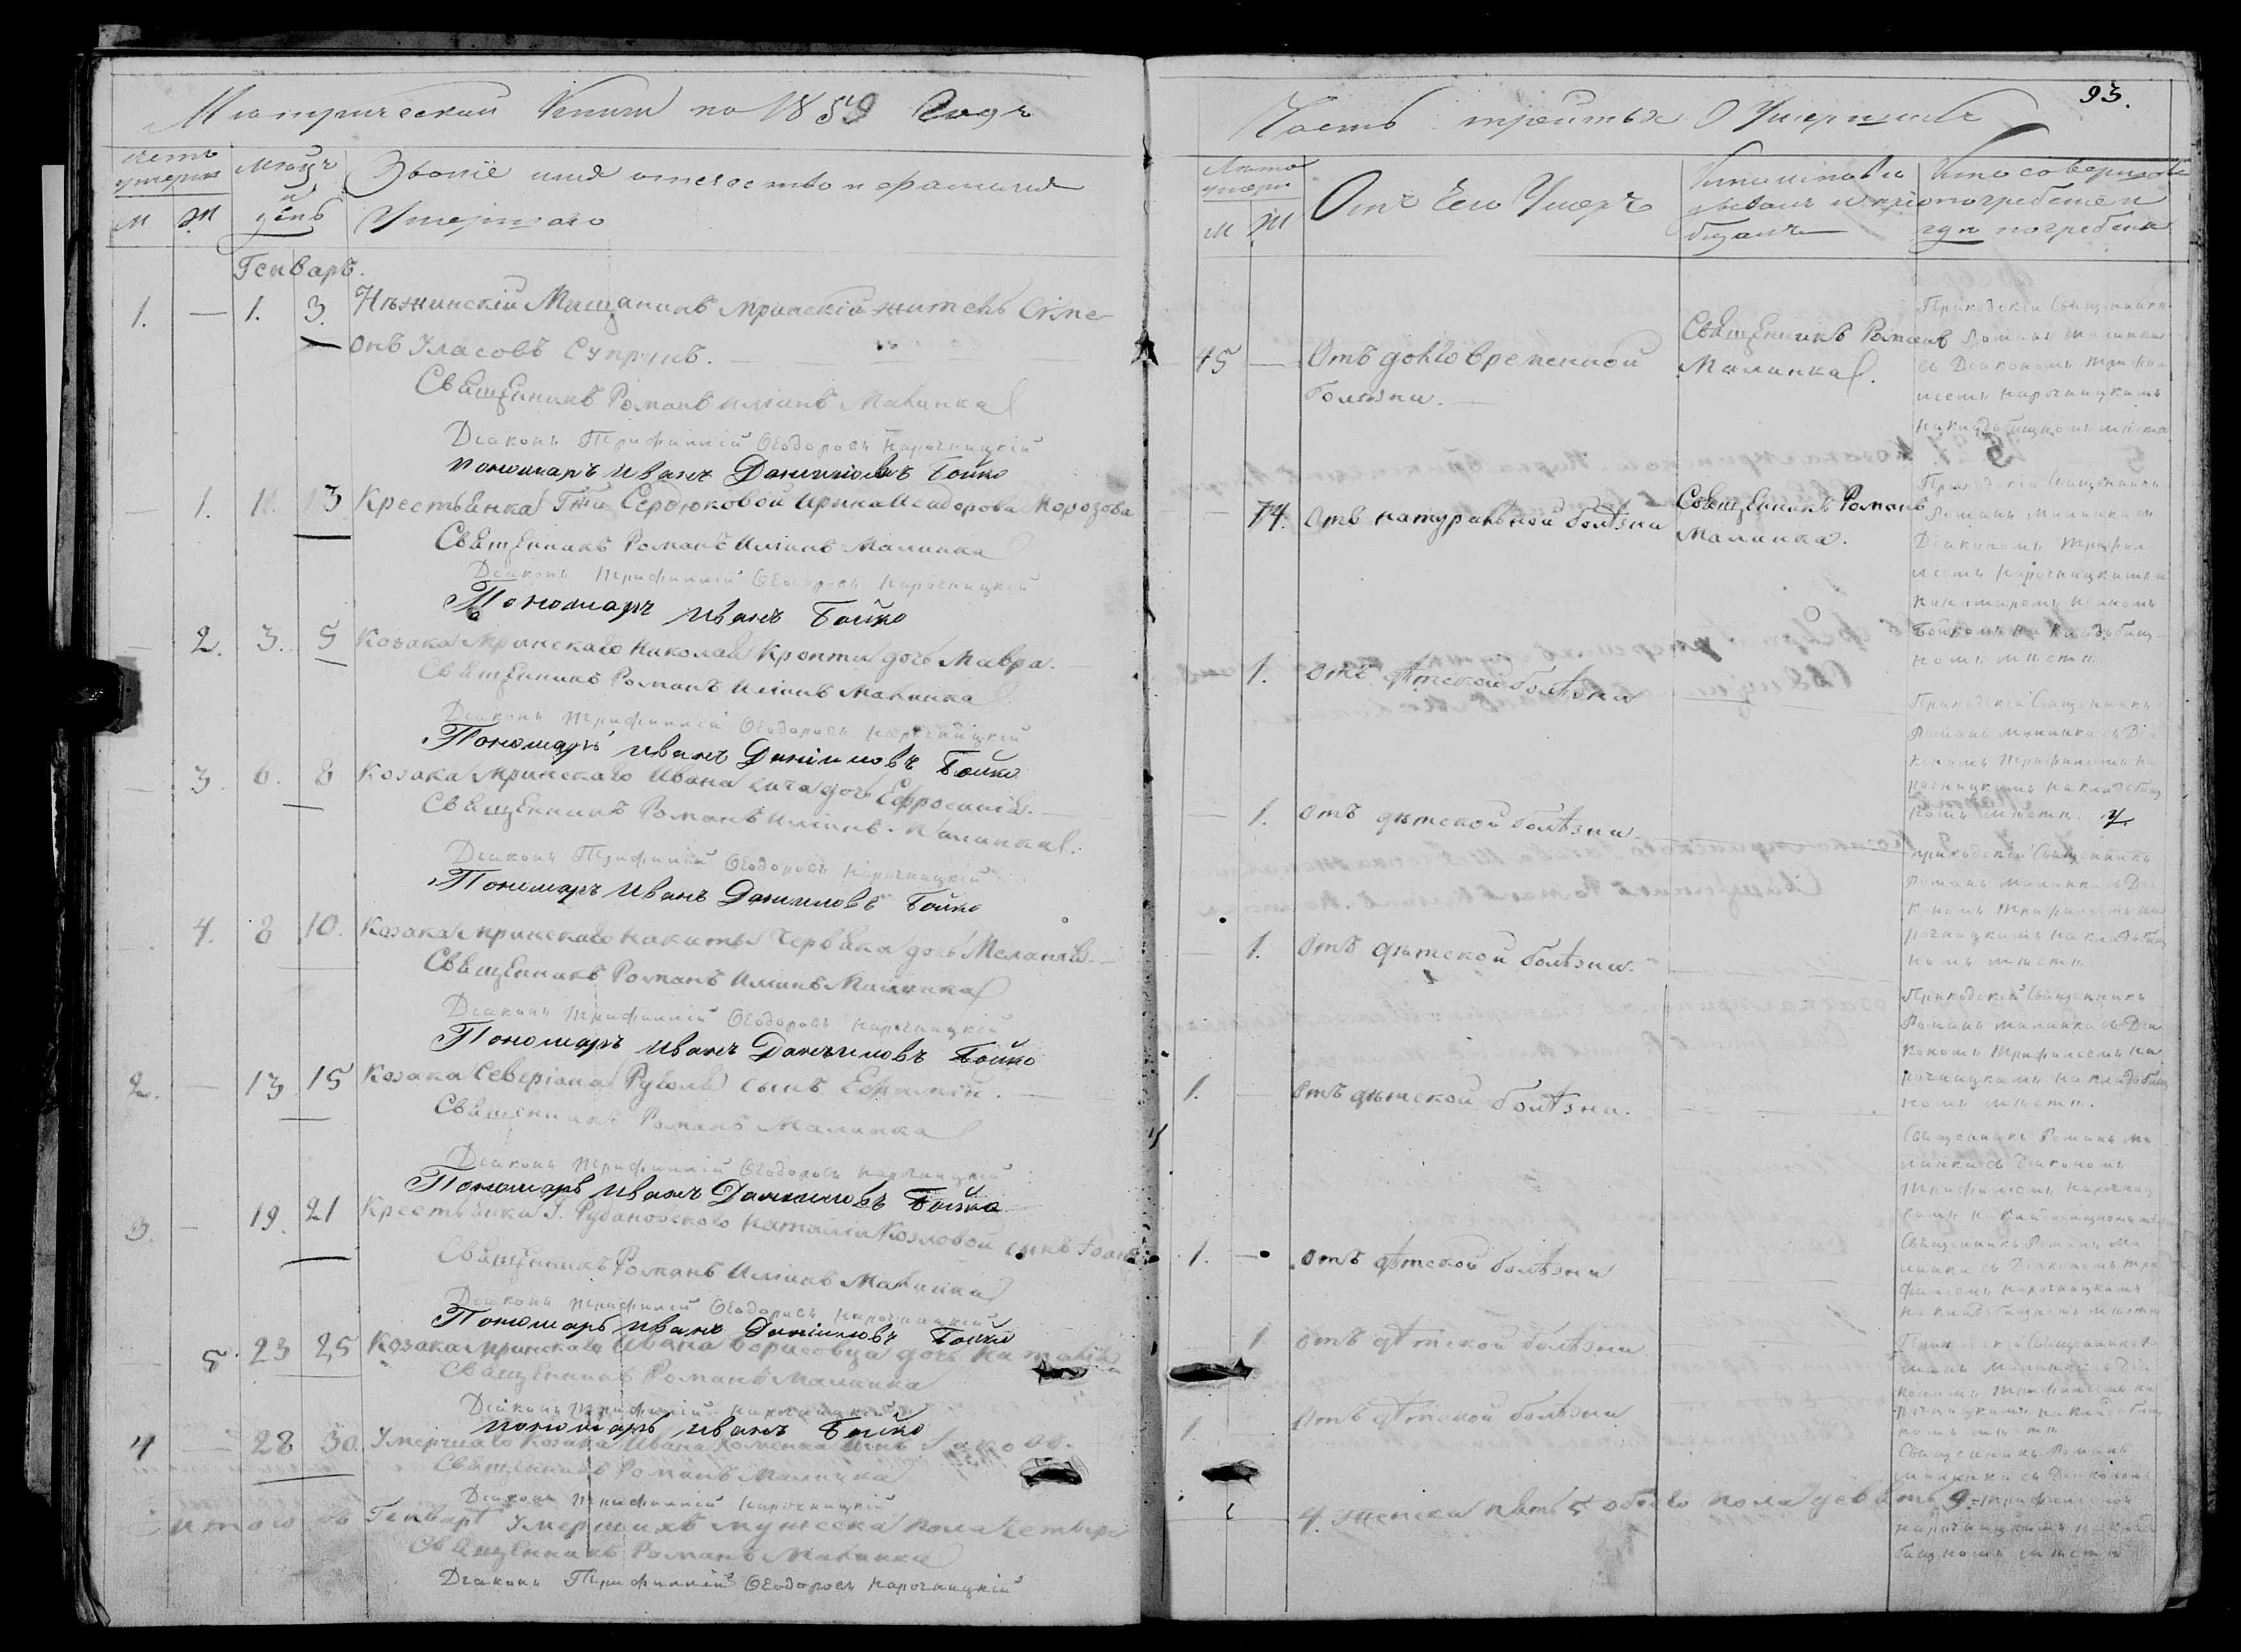 Метрической Книги на 1859 Годъ
Счетъ умерш.
Мѣсяцъ и день
Званіе имя отчество и фамилія
Умершаго
М
Ж
Генварь.
1. — 1. 3. Нѣжинскій Мѣщанинъ Мринскій житель Сіме-
онъ Уласовъ Супрунъ.
Священникъ Романъ Иліинъ Малинка
Діаконъ Трифиллій Ѳеодоровъ Нарочницкій
Пономарь Иванъ Даниловъ Бойко
— 1. 11. 13 Крестьянка Гжи Сердюковой Ирина Исидорова Морозова
Священникъ Романъ Иліинъ Малинка
Діаконъ Трифиллій Ѳеодоровъ Нарочницкій
Пономарь Иванъ Бойко
— 2. 3. 5 Козака Мринскаго Николая Кропты дочь Мавра.
Священникъ Романъ Иліинъ Малинка
Діаконъ Трифиллій Ѳеодоровъ Нарочницкій
Пономарь Иванъ Даниловъ Бойко
— 3. 6. 8 Козака Мринскаго Ивана дочь Ефросинія.
Священникъ Романъ Иліинъ Малинка
Діаконъ Трифиллій Ѳеодоровъ Нарочницкій
Пономарь Иванъ Даниловъ Бойко
— 4. 8 10. Козака Мринскаго Никиты Червяка дочь Меланія.
Священникъ Романъ Иліинъ Малинка
Діаконъ Трифиллій Ѳеодоровъ Нарочницкій
Пономарь Иванъ Даниловъ Бойко
2. — 13. 15 Козака Северіана сынъ Ефимій.
Священникъ Романъ Малинка
Діаконъ Трифиллій Ѳеодоровъ Нарочницкій
Пономарь Иванъ Даниловъ Бойко
3. — 19. 21 Крестьянки Г. Рубановского Наталіи Козловой сынъ Іоанъ
Священникъ Романъ Иліинъ Малинка
Діаконъ Трифиллій Ѳеодоровъ Нарочницкій
Пономарь Иванъ Даниловъ Бойко
5. 23 25 Козака Мринскаго Ивана Борисовца дочь Наталія
Священникъ Романъ Малинка
Діаконъ Трифиллій Нарочницкій
Пономарь Иванъ Бойко
4 — 28 30. Умершаго Козака Ивана Хоменка сынъ Іаковъ.
Священникъ Романъ Малинка
Діаконъ Трифиллій Нарочницкій
Итого въ Генварѣ умершихъ мужеска пола четыре
Священникъ Романъ Малинка
Діаконъ Трифиллій Ѳеодоровъ Нарочницкій
93.
Часть третья О Умершихъ
Лѣта умерш.
М
Ж
Отъ Чего Умеръ
Кто исповѣдывалъ и пріобщалъ
Кто совершалъ погребеніе и гдѣ погребены
45 — Отъ долговременной
болѣзни.
Священникъ Романъ
Малинка.
Приходскій Священникъ
Романъ Малинка
съ Діакономъ Трифил
ліемъ Нарочницкимъ
на кладбищномъ мѣстѣ
— 74. Отъ натуральной болѣзни
Священникъ Романъ
Малинка.
Приходскій Священникъ
Романъ Малинка съ
Діакономъ Трифил
ліемъ Нарочницкимъ и
пономаремъ Иваномъ
Бойкомъ на кладбищ-
номъ мѣстѣ
— 1. Отъ дѣтской болѣзни
Приходскій Священникъ
Романъ Малинка съ Діа
кономъ Трифиліемъ На
рочницкимъ на кладбищ
номъ мѣстѣ.
— 1. Отъ дѣтской болѣзни.
Приходскій Священникъ
Романъ Малинка съ Діа
кономъ Трифиліемъ На
рочницкимъ на кладбищ
номъ мѣстѣ
— 1. Отъ дѣтской болѣзни.
Приходскій Священникъ
Романъ Малинка съ Діа
кономъ Трифиліемъ На
рочницкимъ на кладбищ
номъ мѣстѣ.
1. — Отъ дѣтской болѣзни.
Священникъ Романъ Ма
линка съ Діакономъ
Трифиліемъ Нарочниц
кимъ на кладбищномъ
1. — Отъ дѣтской болѣзни
Священникъ Романъ Ма
линка съ Діакономъ Три
филіемъ Нарочницкимъ
на кладбищномъ мѣстѣ
1 Отъ дѣтской болѣзни
Приходскій Священникъ Ро
манъ Малинка съ Діа
кономъ Трифиліемъ На
рочницкимъ на кладбищ
номъ мѣстѣ
1. Отъ дѣтской болѣзни
Священникъ Романъ
Малинка съ Діакономъ
Трифиліемъ
Нарочницкимъ на клад
бищномъ мѣстѣ
4. женска пять 5 обоего пола девять 9.